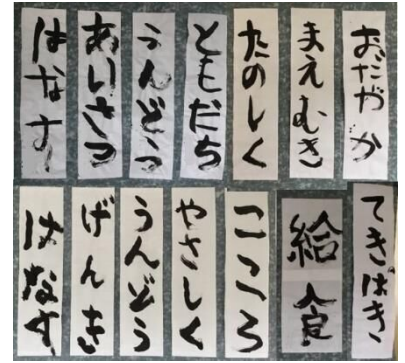 おだやか
まえむき
たのしく
ともだち
うんどう
あいさつ
はなす
てきぱき
給食
こころ
やさしく
うんどう
げんき
はなす